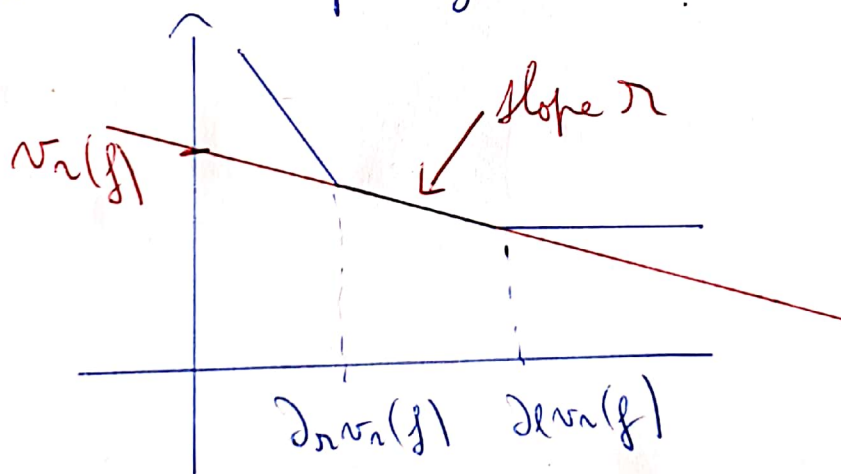 slope r
v_r(f)
∂_r v_r(f) ∂_ℓ v_r(f)